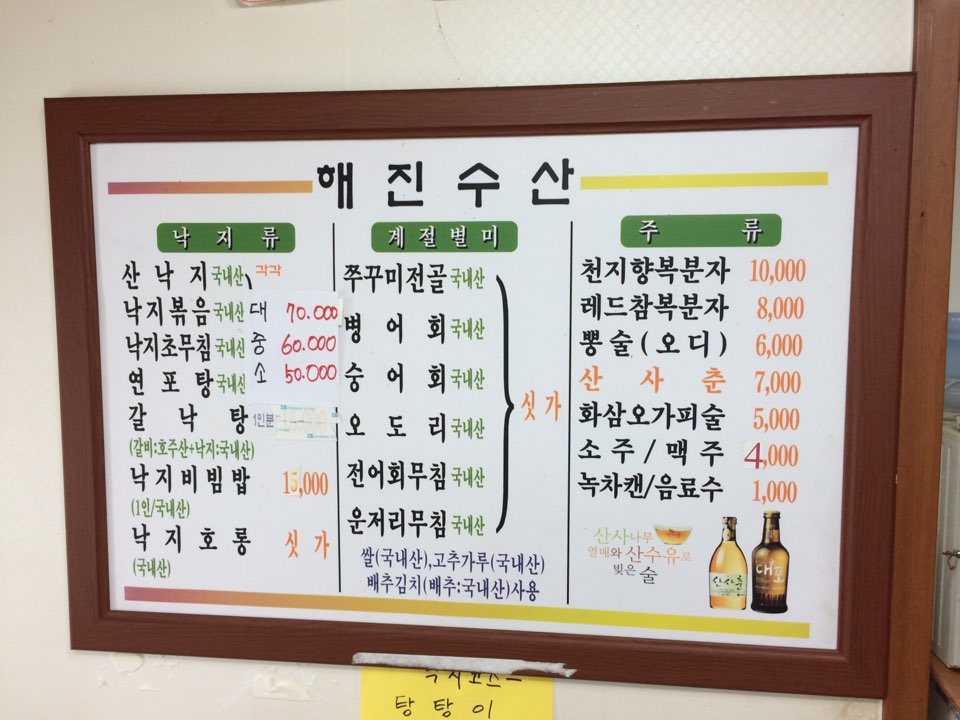 해진수산
낙지류
산낙지 국내산 각각
낙지볶음 국내산 대 70.000
낙지초무침 국내산 중 60.000
연포탕 국내산 소 50.000
갈낙탕 1인분
(갈비:호주산+낙지:국내산)
낙지비빔밥 15,000
(1인/국내산)
낙지호롱 싯가
(국내산)
계절별미
쭈꾸미전골 국내산
병어회 국내산
숭어회 국내산
오도리 국내산
전어회무침 국내산
운저리무침 국내산
싯가
쌀(국내산),고추가루(국내산)
배추김치(배추:국내산)사용
주류
천지향복분자 10,000
레드참복분자 8,000
뽕술(오디) 6,000
산사춘 7,000
화삼오가피술 5,000
소주/맥주 4,000
녹차캔/음료수 1,000
산사나무
열매와 산수유로
빚은 술
산사춘
대포
탕탕이